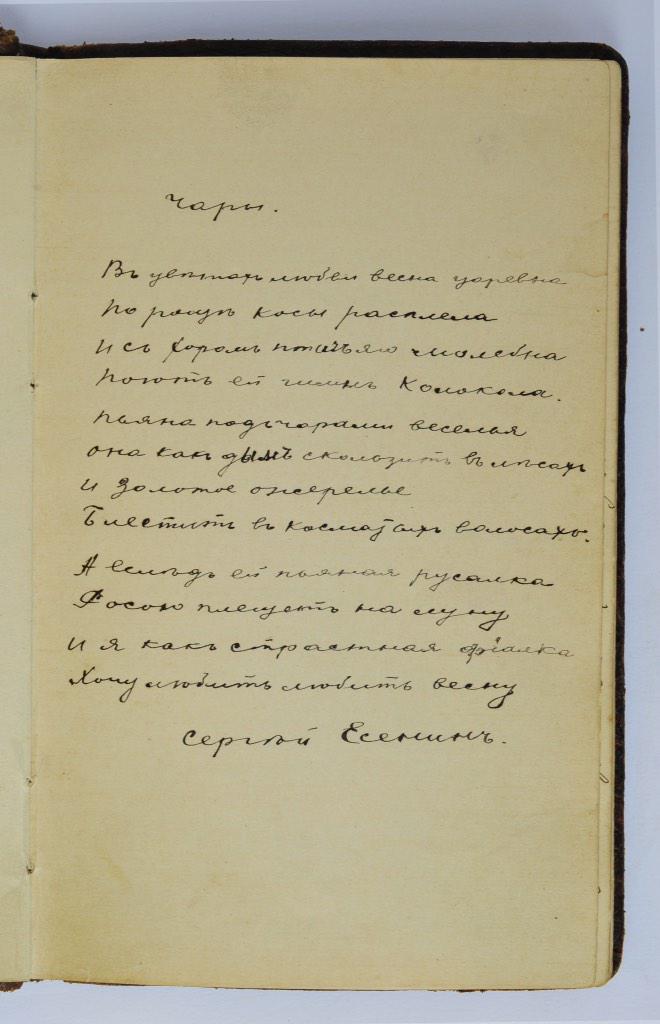 Чары.
Въ цвѣтахъ любви весна царевна
По рощѣ косы расплела
И съ хоромъ птичьяго молебна
Поютъ ей гимнъ колокола.
Пьяна подъ чарами веселья
Она какъ дымъ скользитъ въ лѣсахъ
И золотое ожерелье
Блеститъ въ косматыхъ волосахъ.
А вслѣдъ ей пьяная русалка
Росою плещетъ на луну
И я какъ страстная фіалка
Хочу любить любить весну
Сергѣй Есенинъ.